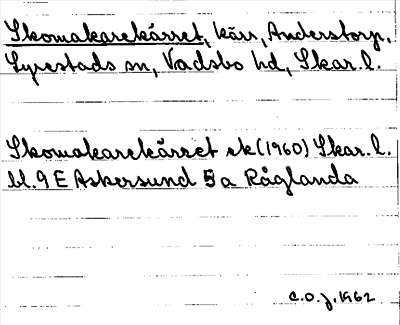 Skomakarekärret, kärr, Anderstorp,
Lyrestads sn, Vadsbo hd, Skar.l.
Skomakarekärret ek(1960) Skar.l.
bl.9E Askersund 5a Råglanda
C.O.J. 1962